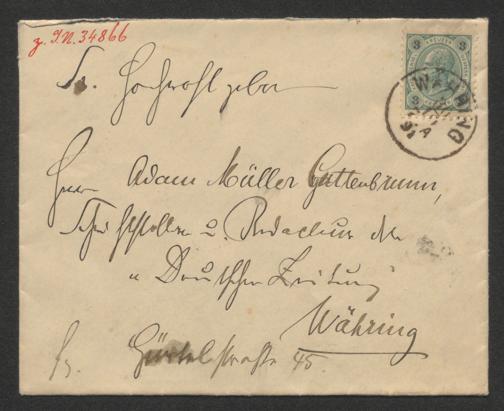 z. I.N. 34866
Sr. Hochwohlgeboren
Herrn Adam Müller Guttenbrunn,
Schriftsteller u. Redacteur der
„Deutschen Zeitung"
Währing
Gürtelstraße 45.
3 3
3
WÄHRING